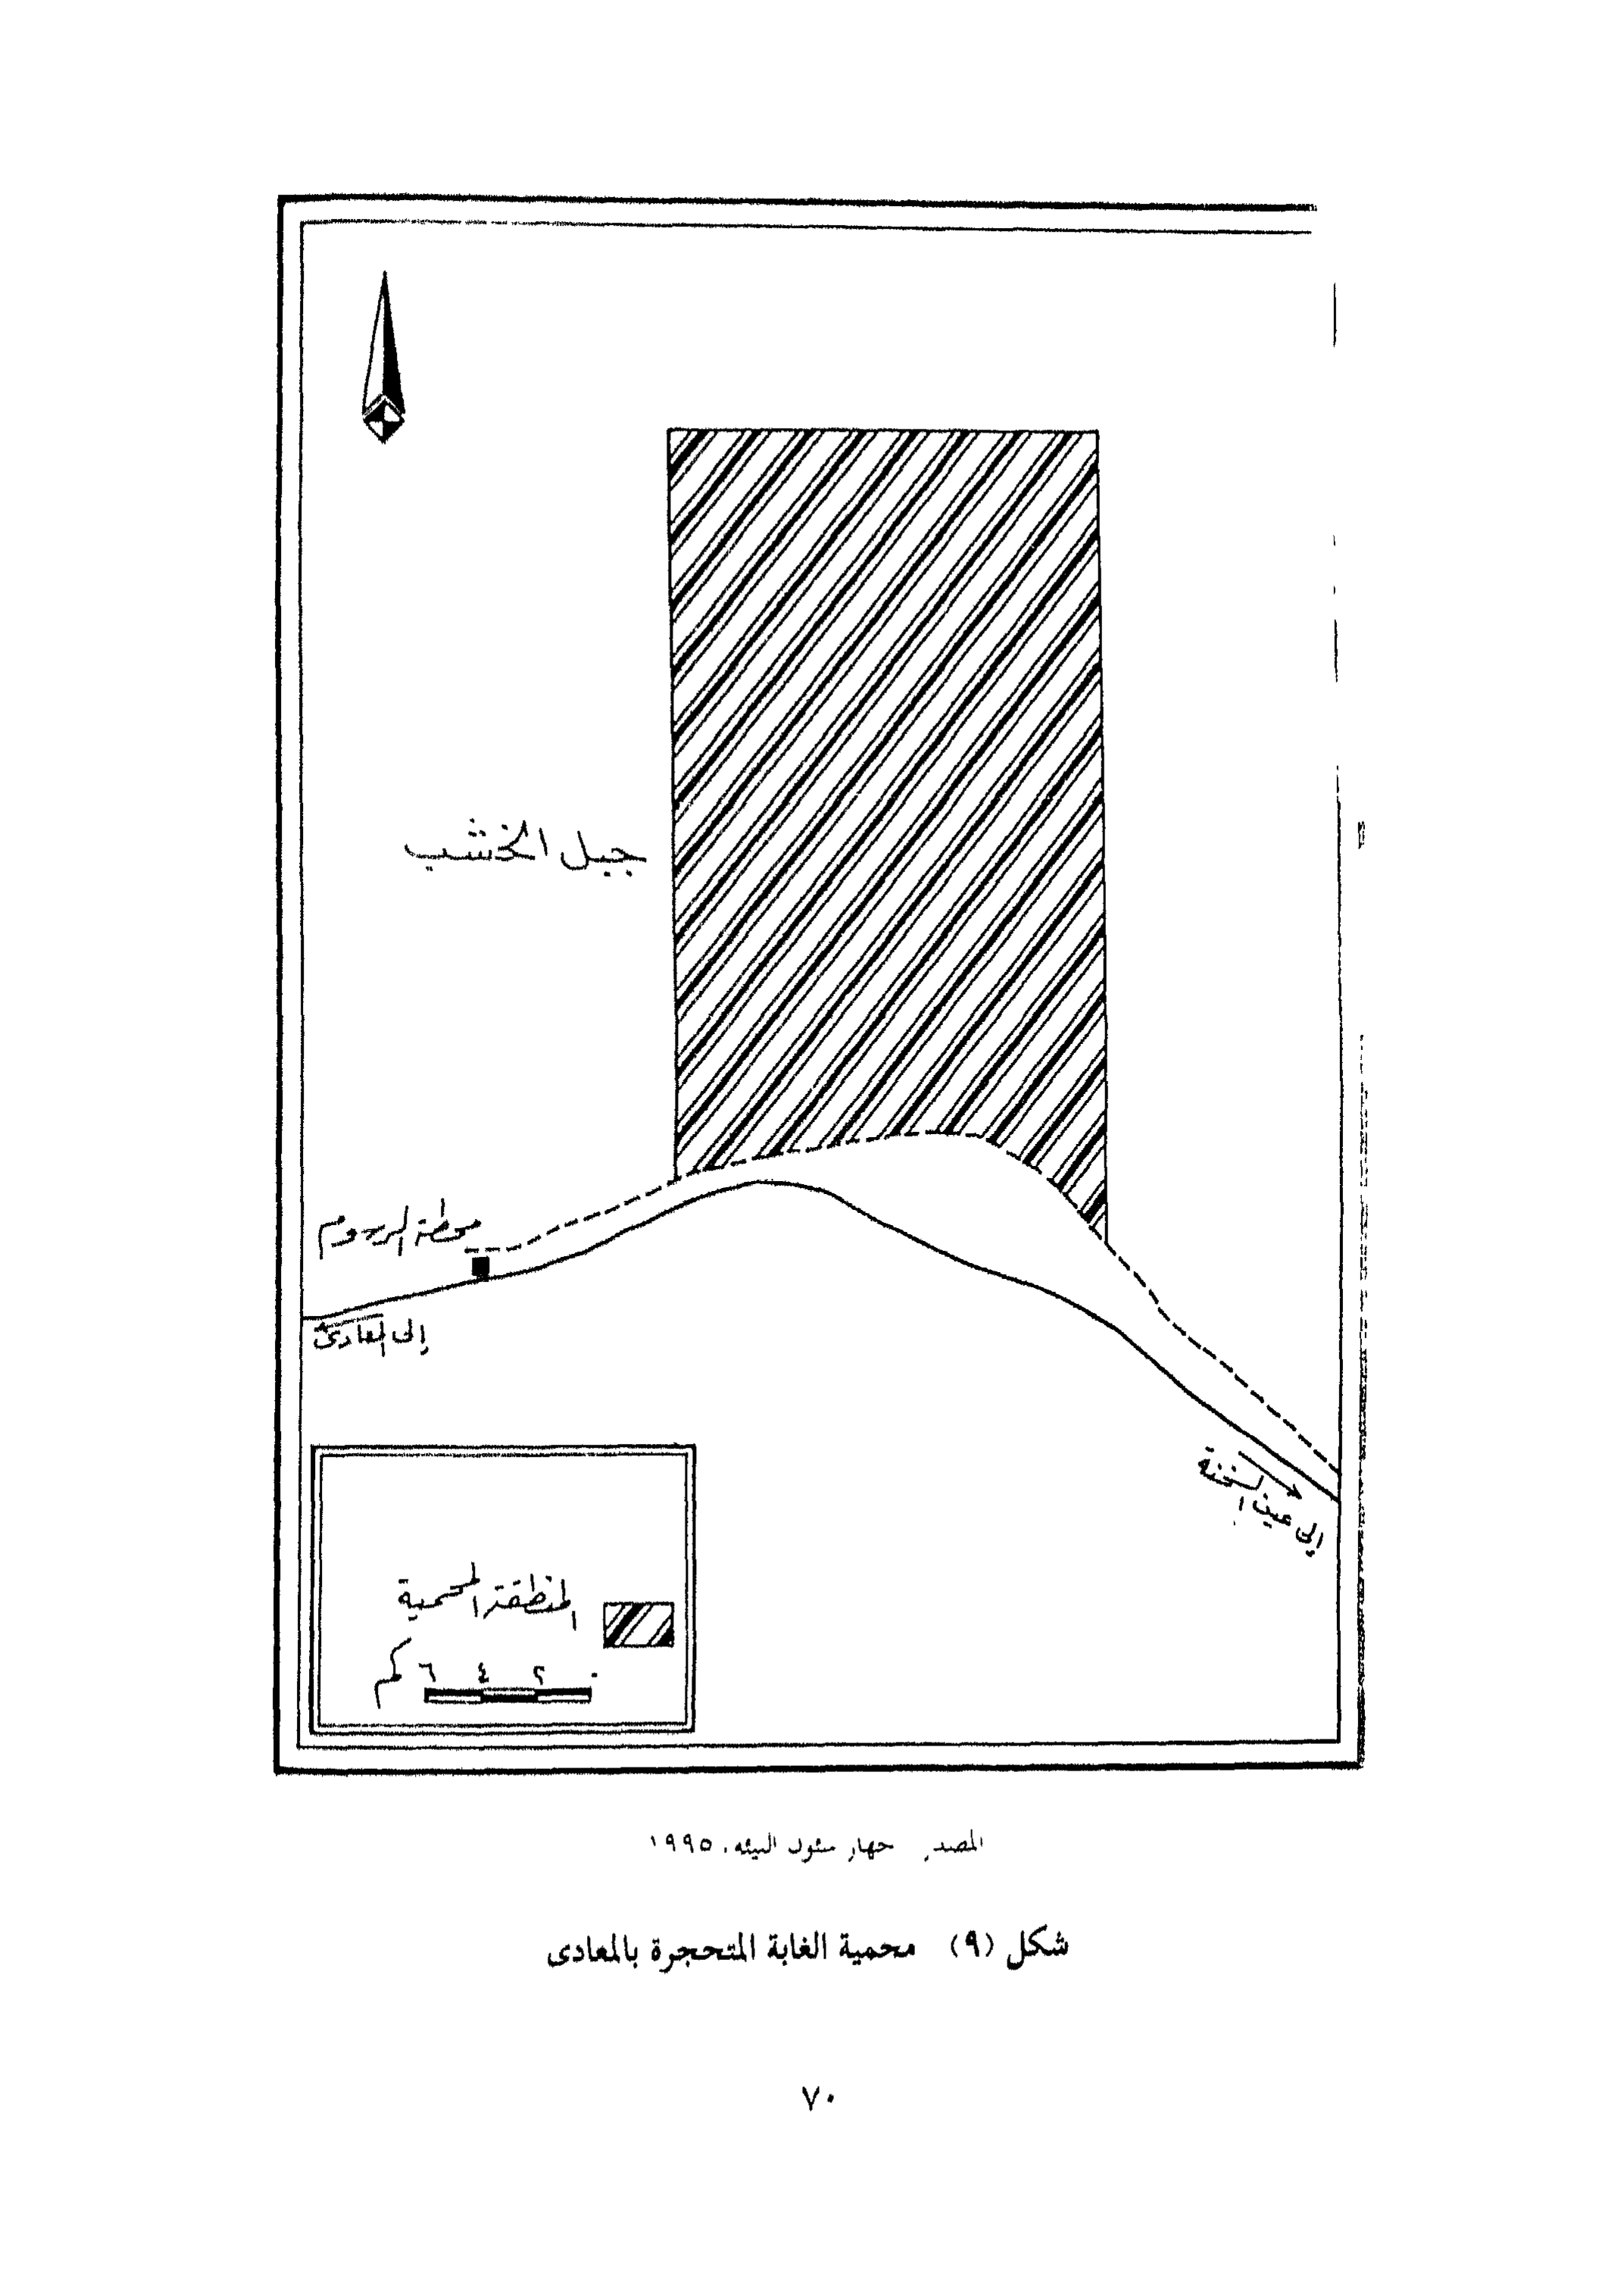 جبل الخشب
محطة الردوم
إلى المعادى
إلى عين السخنة
المنطقة المحمية
٠ ٢ ٤ ٦ كم
المصدر جهاز شئون البيئه، ١٩٩٥
شكل (٩) محمية الغابة المتحجرة بالمعادى
٧٠